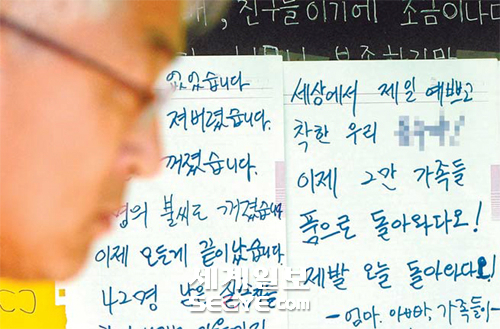 , 친구들이기에 조금이나
없었습니다
져버렸습니다.
꺼졌습니다.
명의 불씨로 꺼졌습니다
이제 모든게 끝이났습니다.
42명 남은
세상에서 제일 예쁘고
착한 우리
이제 그만 가족들
품으로 돌아와다오!
제발 오늘 돌아와다오!
- 엄마, 아빠, 가족들이 -
세계일보
SEGYE.com